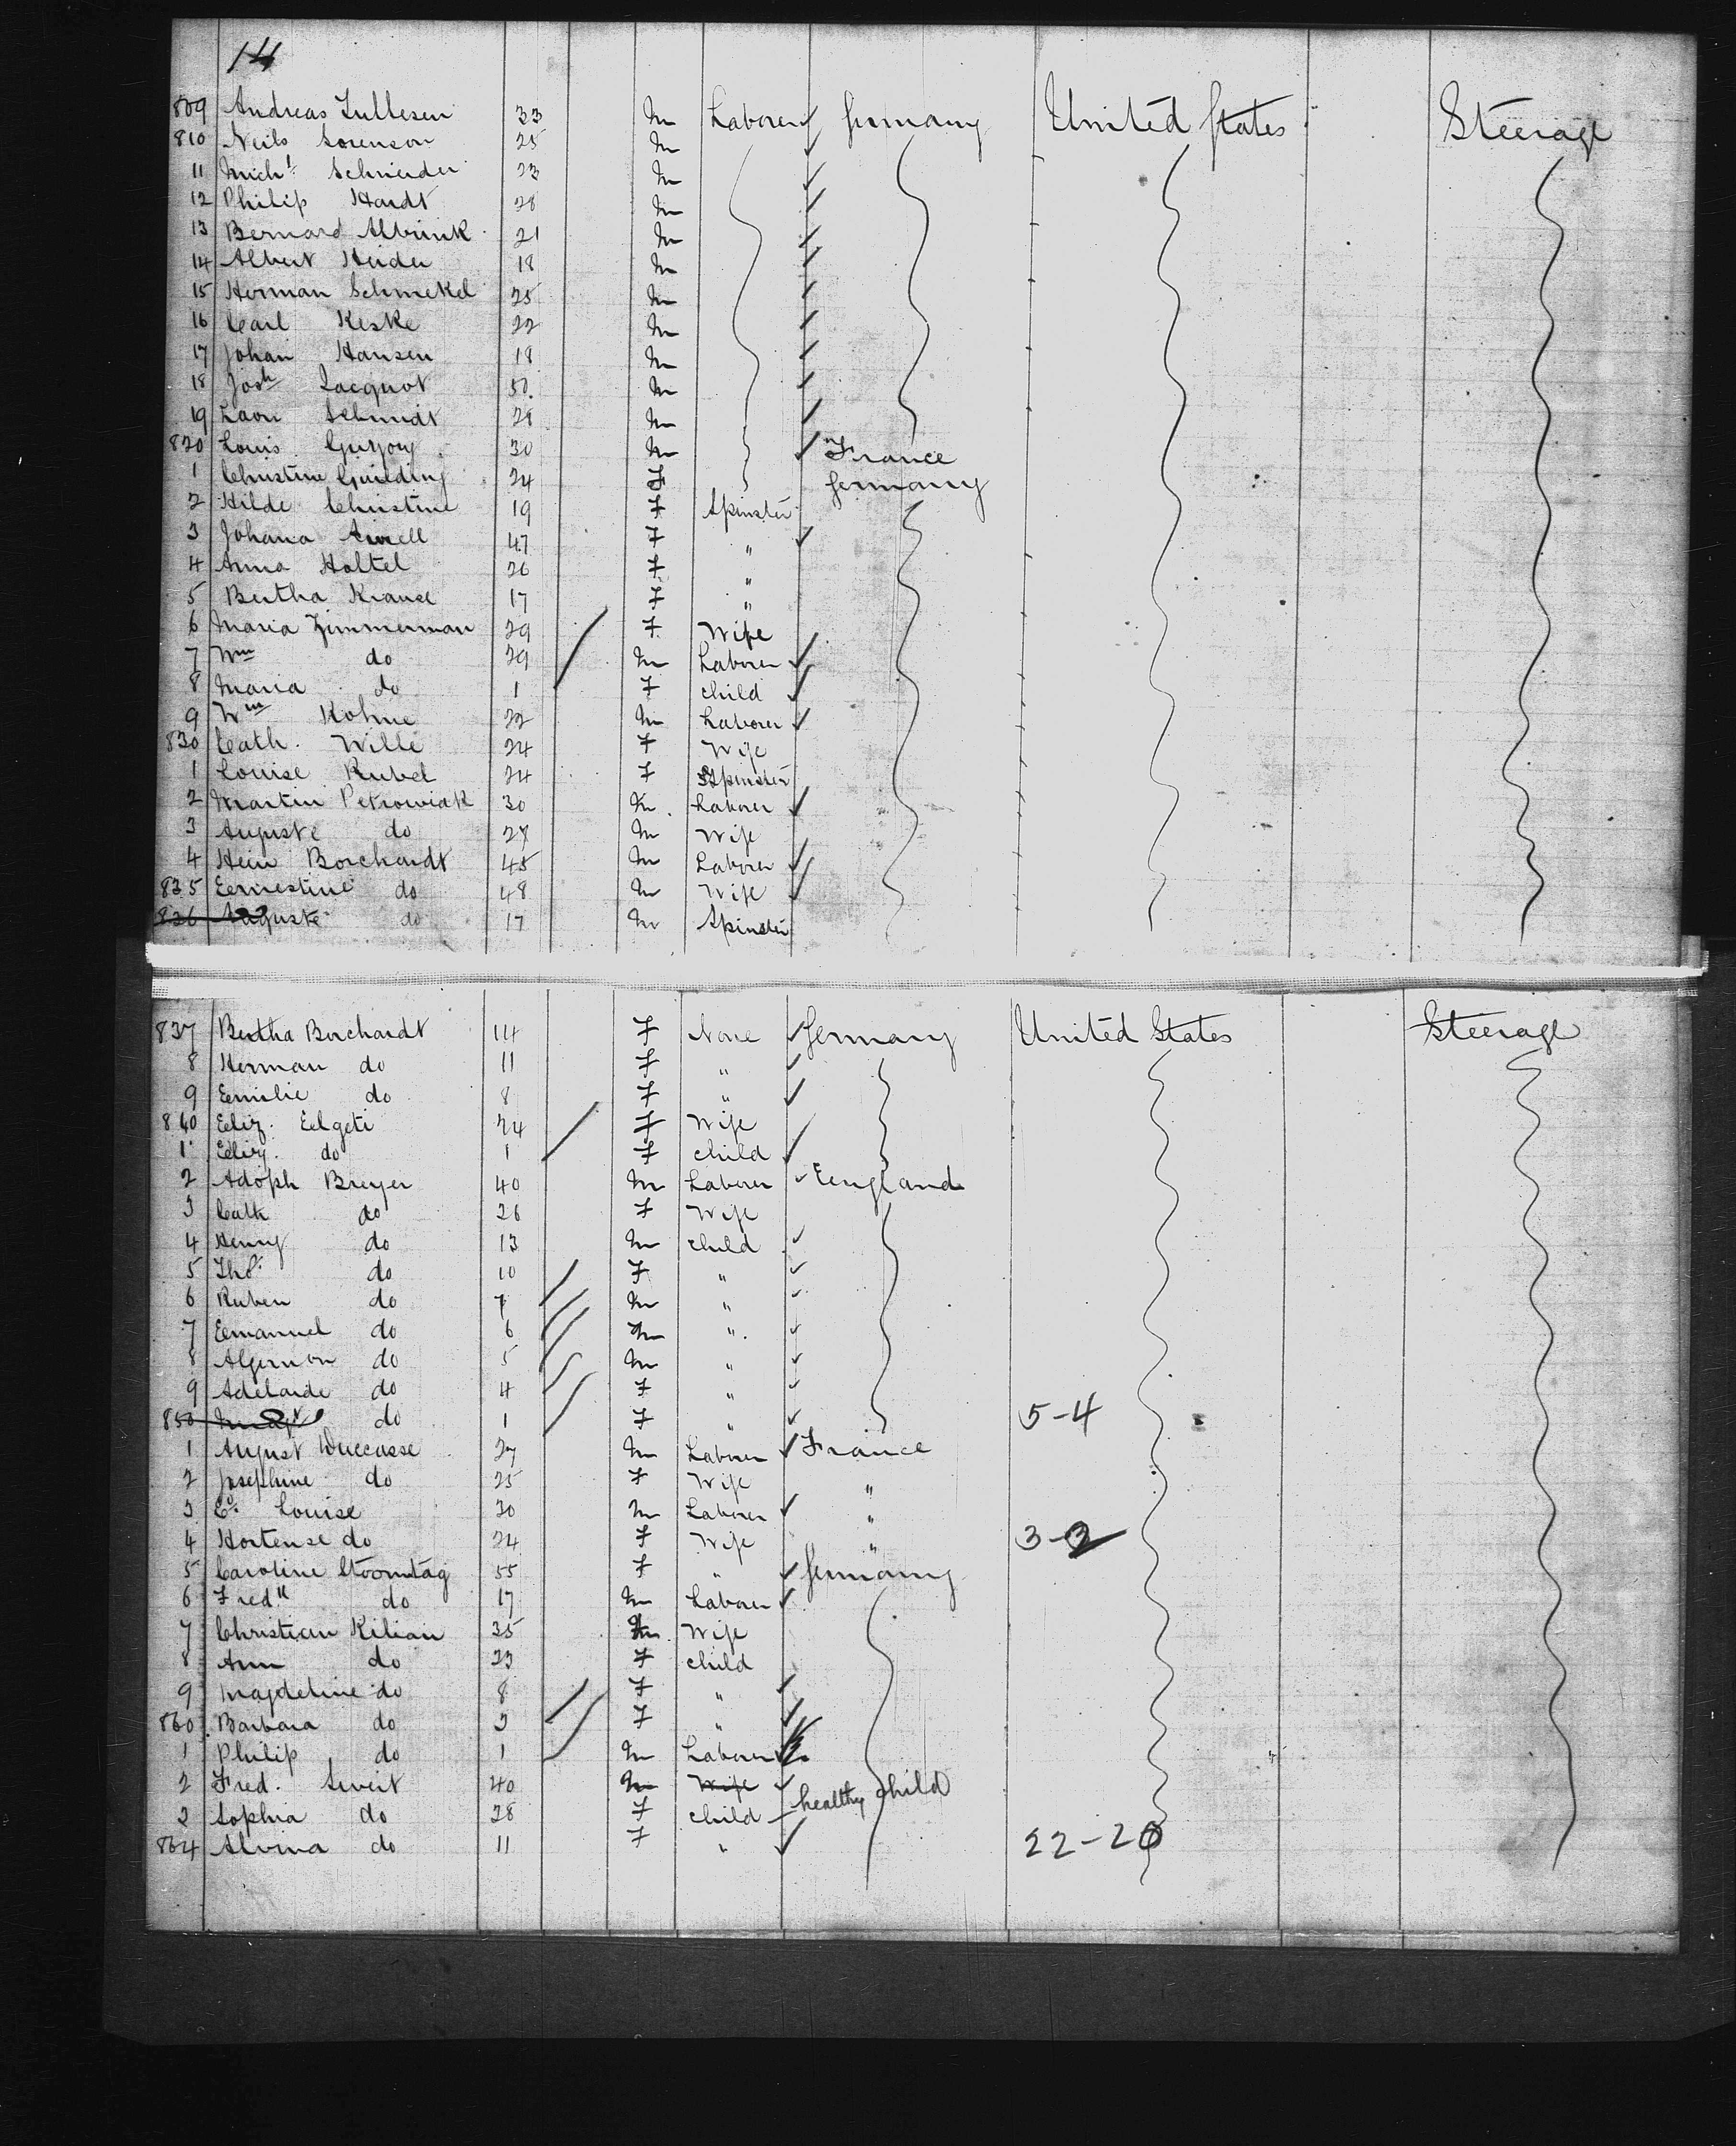 14
809 Andreas Tullesen 33 m Laborer Germany United States Steerage
810 Neils Sorenson 25 m
11 Michl Schneider 23 m
12 Philip Hardt 28 m
13 Bernard Albrink 21 m
14 Albert Heider 18 m
15 Herman Schmekel 25 m
16 Carl Keske 22 m
17 Johan Hansen 18 m
18 Josh Jacquot 50. m
19 Laon Schmidt 28 m
820 Louis 30 m France
1 Christine Guilding 24 F Germany
2 Hilde Christine 19 F Spinster
3 Johana 47 F "
4 Anna Holtel 26 F "
5 Bertha Krause 17 F "
6 Maria Zimmerman 29 F Wife
7 Wm do 29 m Laborer
8 Maria do 1 F child
9 Wm Kohne 22 m Laborer
830 Cath. Wille 24 F Wife
1 Louise Rubel 24 F Spinster
2 Martin Petrowiak 30 m Laborer
3 Auguste do 27 m Wife
4 Hein Borchardt 45 m Laborer
835 Eernestine do 48 m Wife
836 Auguste do 17 m Spinster
837 Bertha Borchardt 14 F None Germany United States Steerage
8 Herman do 11 F "
9 Eemilie do 8 F "
840 Eeliz. Eelgeti 24 F Wife
1 Eeliz. do 1 F child
2 Adolph Breyer 40 m Laborer Eengland
3 Cath do 26 F Wife
4 Henry do 13 m child
5 Tho. do 10 F "
6 Ruben do 7 m "
7 Eemanuel do 6 m "
8 Algernon do 5 m "
9 Adelaide do 4 F "
850 do 1 F " 5-4
1 August Duccasse 27 m Laborer France
2 Josephine do 25 F Wife "
3 Louise 30 m Laborer "
4 Hortense do 24 F Wife " 3-2
5 Caroline Stoomtag 55 F " Germany
6 Fredk do 17 m Laborer
7 Christian Kilian 35 m Wife
8 Ann do 23 F child
9 Magdeline do 8 F "
860 Barbara do 3 F "
1 Philip do 1 m Laborer
2 Fred. Sweit 40 m Wife
2 Sophia do 28 F child healthy child
864 Alvina do 11 F " 22-20